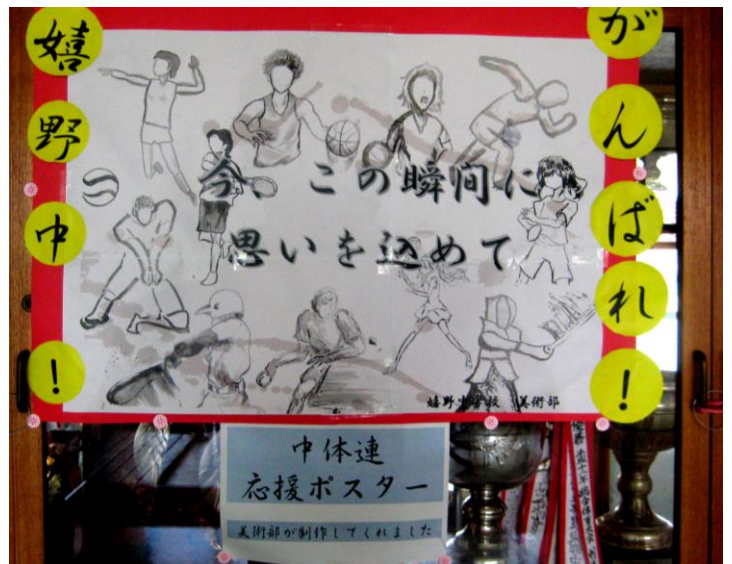 がんばれ!
嬉野中!
今、この瞬間に
思いを込めて
嬉野中学校 美術部
中体連
応援ポスター
美術部が制作してくれました